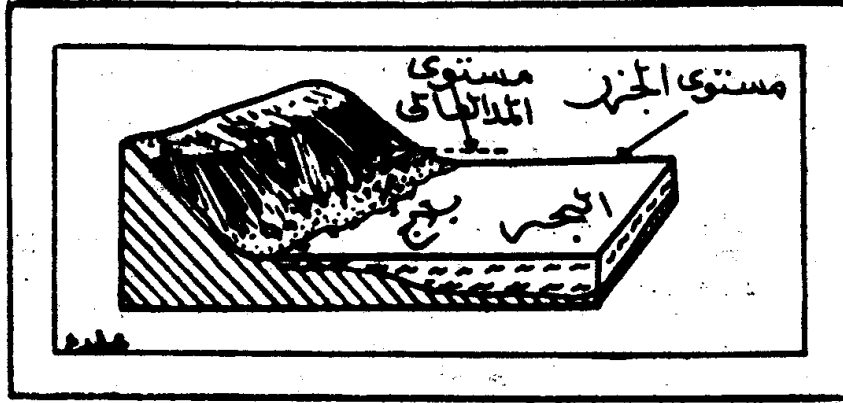 مستوى
المد العالى
مستوى الجزر
البحر